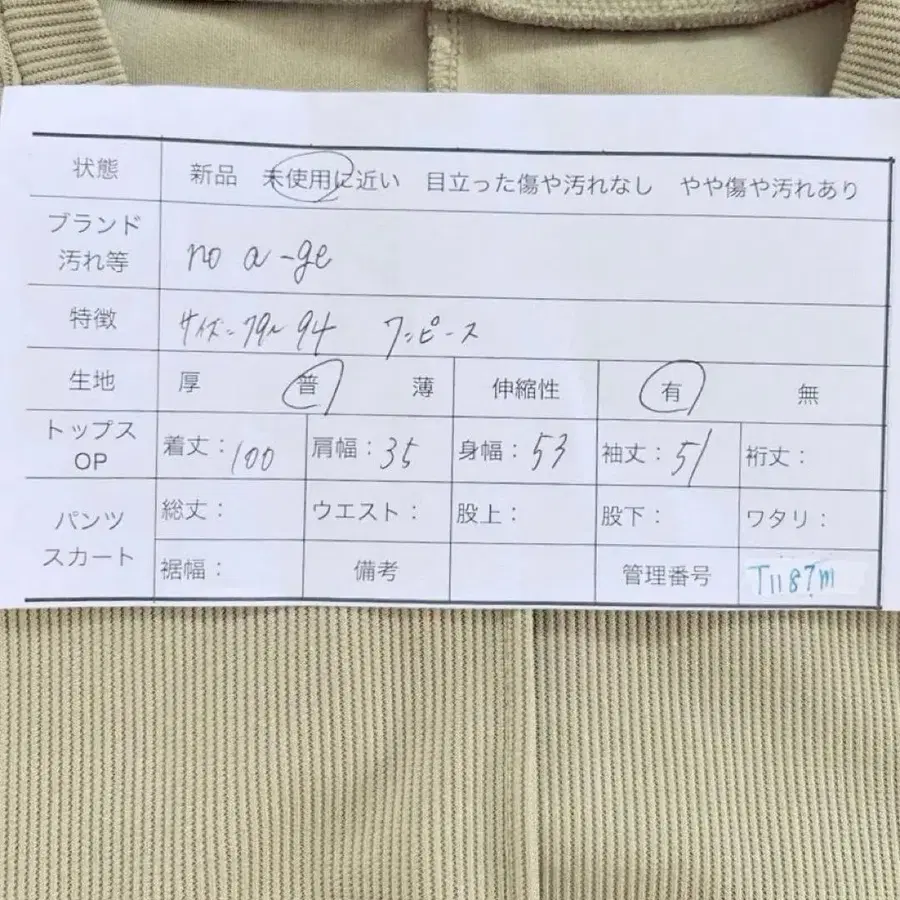 状態 新品 未使用に近い 目立った傷や汚れなし やや傷や汚れあり
ブランド
汚れ等 no a-ge
特徴 サイズ=79~94 ワンピース
生地 厚 普 薄 伸縮性 有 無
トップス
OP 着丈:100 肩幅:35 身幅:53 袖丈:51 裄丈:
パンツ
スカート 総丈: ウエスト: 股上: 股下: ワタリ:
裾幅: 備考 管理番号 T1187m